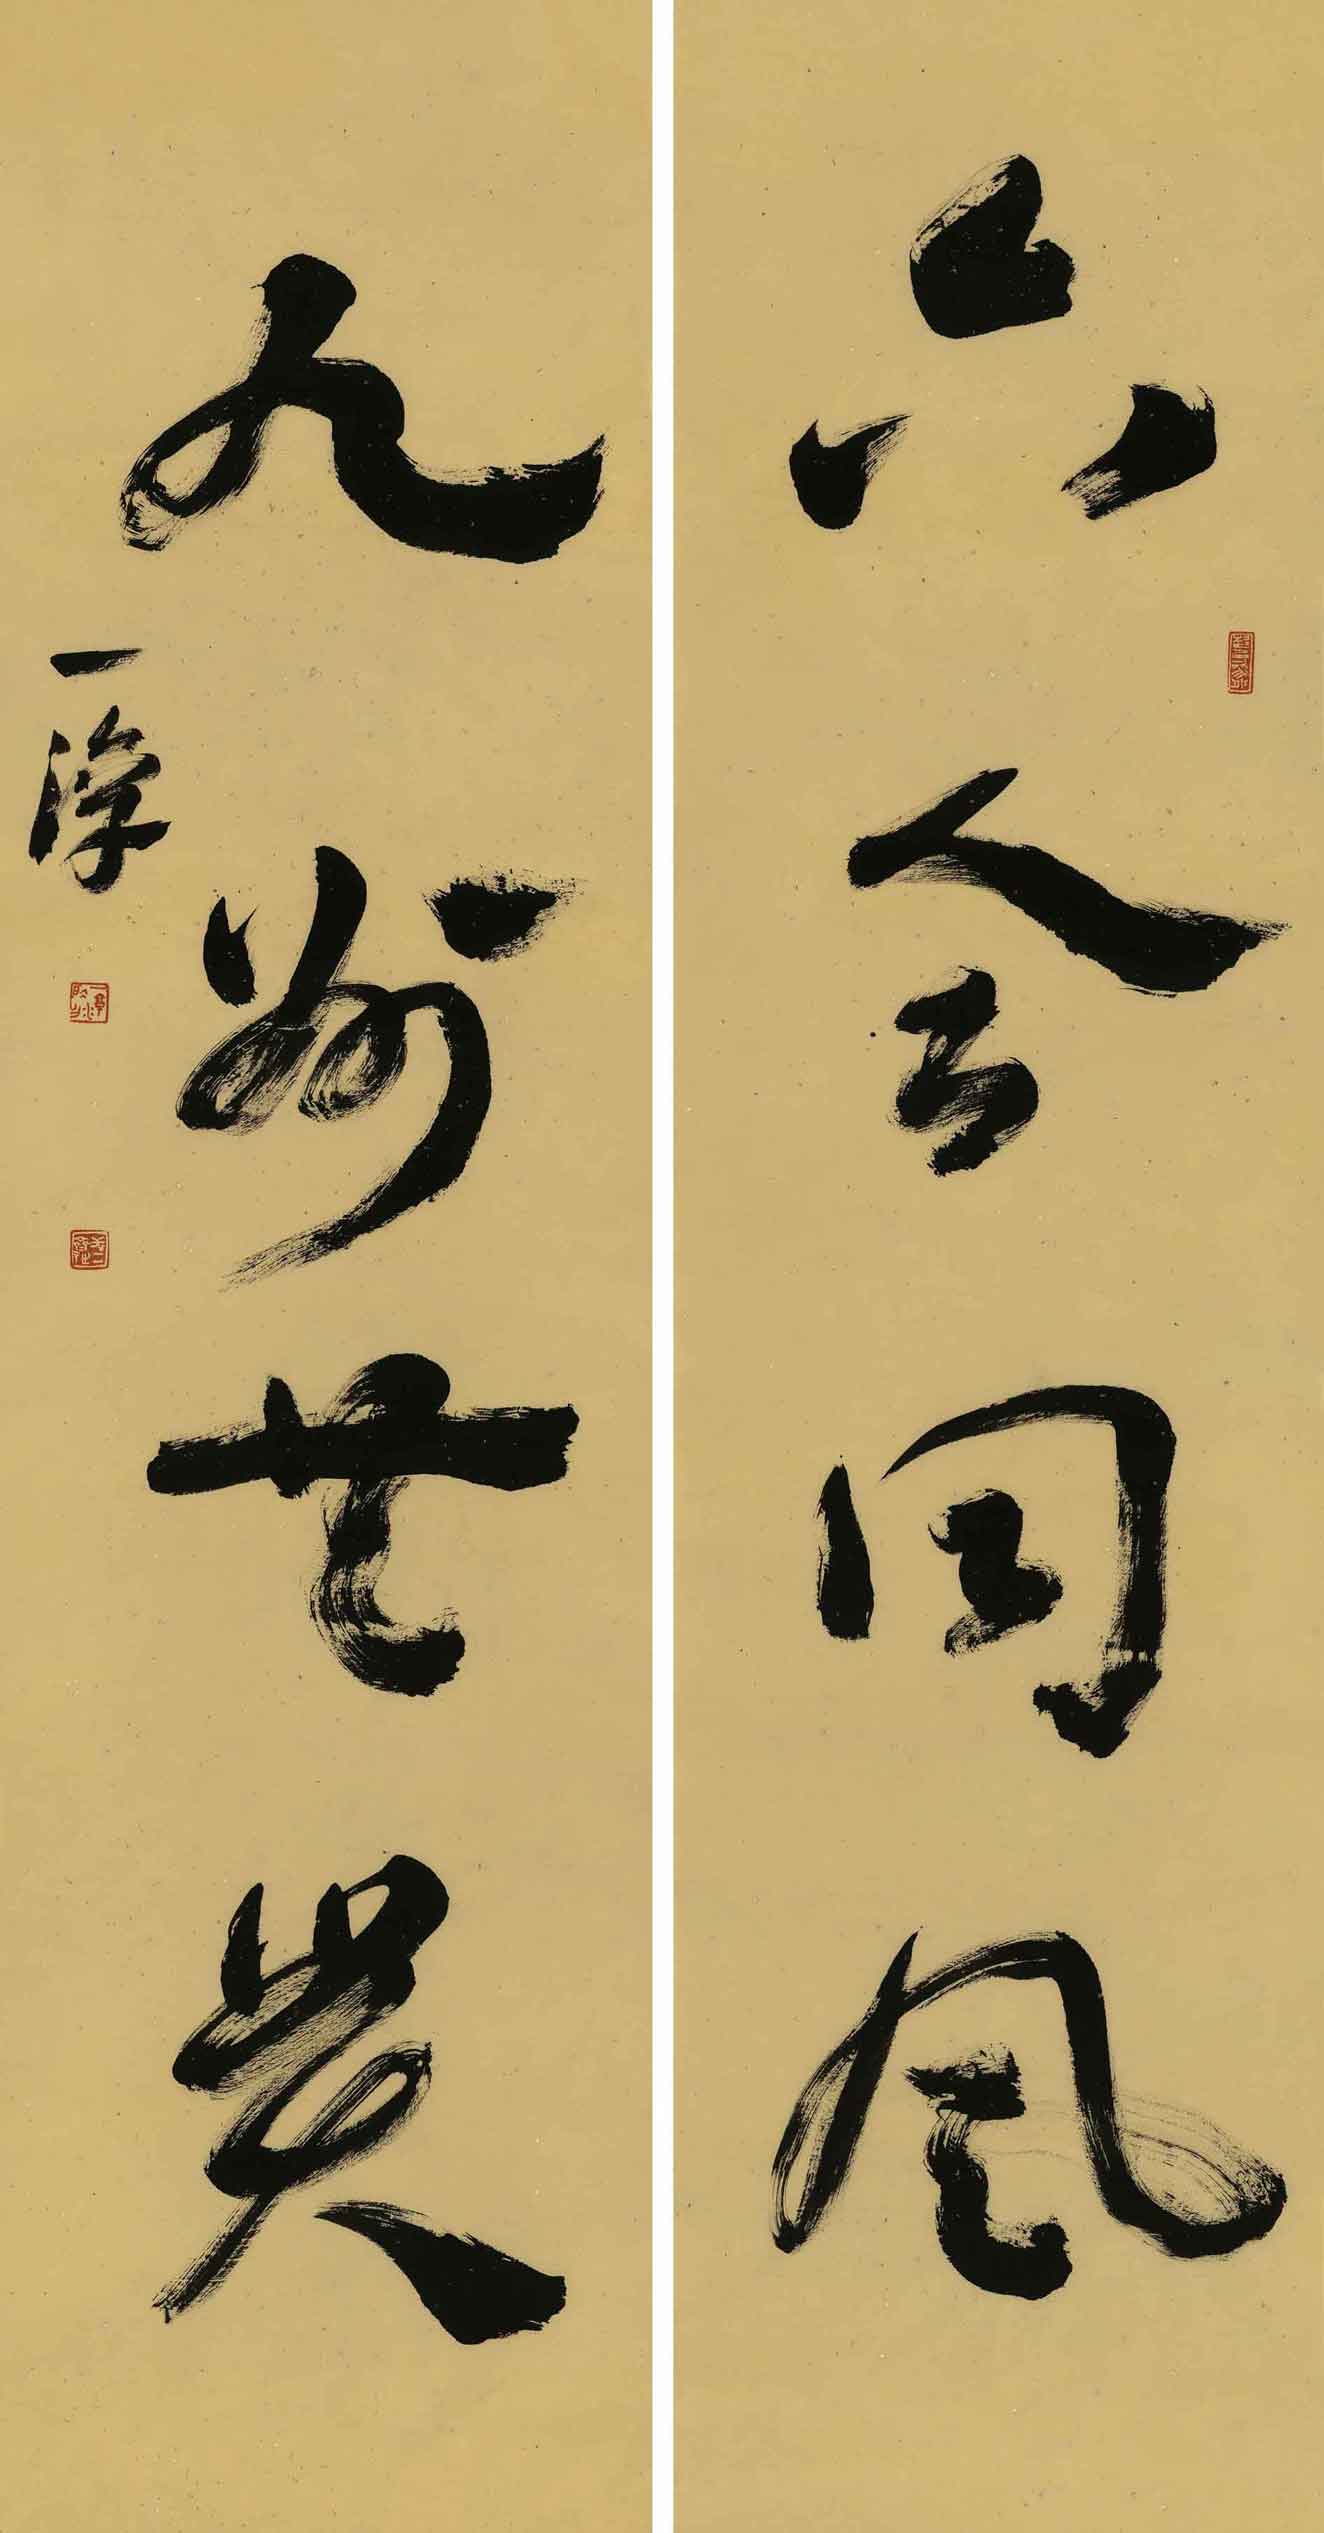 六合同風
九州共貫
一淳